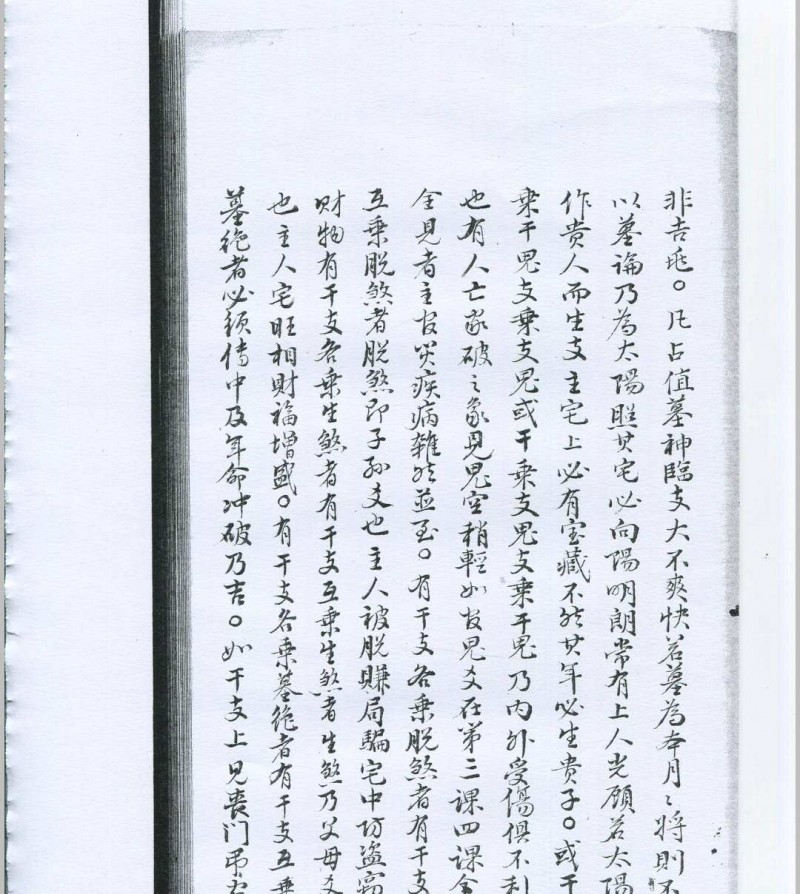 非吉兆。凡占值墓神臨支大不爽快若墓為本月〻將則不
以墓論乃為太陽照其宅必向陽明朗常有上人光顧若太陽
作貴人而生支主宅上必有宝藏不然其年必生貴子。或干
乘干鬼支乘支鬼或干乘支鬼支乘干鬼乃內外受傷俱不利
也有人亡家破之象見鬼空稍輕如官鬼爻在第三課四課全
全見者主官災疾病雜然並至。有干支各乘脫煞者有干支
互乘脫煞者脫煞即子孫爻也主人被脫賺局騙宅中防盜
財物有干支各乘生煞者有干支互乘生煞者生煞乃父母爻
也主人宅旺相財福增盛。有干支各乘墓絶者有干支互乘
墓絶者必須傳中及年命冲破乃吉。如干支上見喪门吊